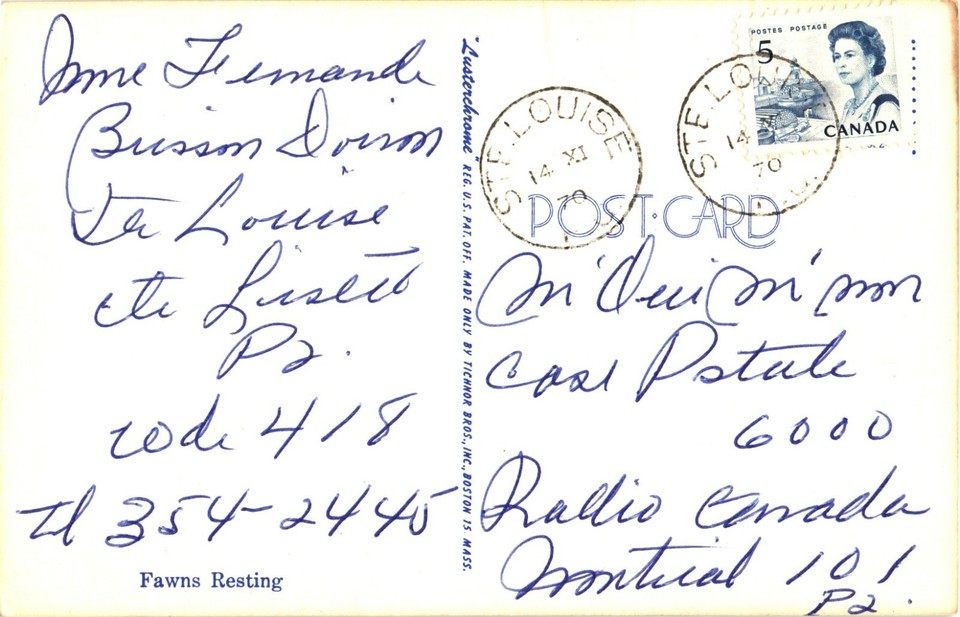 Mme Fernande
Buisson Doiron
Ste Louise
cte Lislet
P2.
code 418
tel 354-2445
Fawns Resting
"Lusterchrome" REG. U.S. PAT. OFF. MADE ONLY BY TICHNOR BROS., INC., BOSTON 15, MASS.
POSTES POSTAGE
5
CANADA
STE-LOUISE
14 XI
70
STE-LOUISE
14 XI
70
POST·CARD
case Pstale
6000
Radio Canada
Montreal 101
P2.